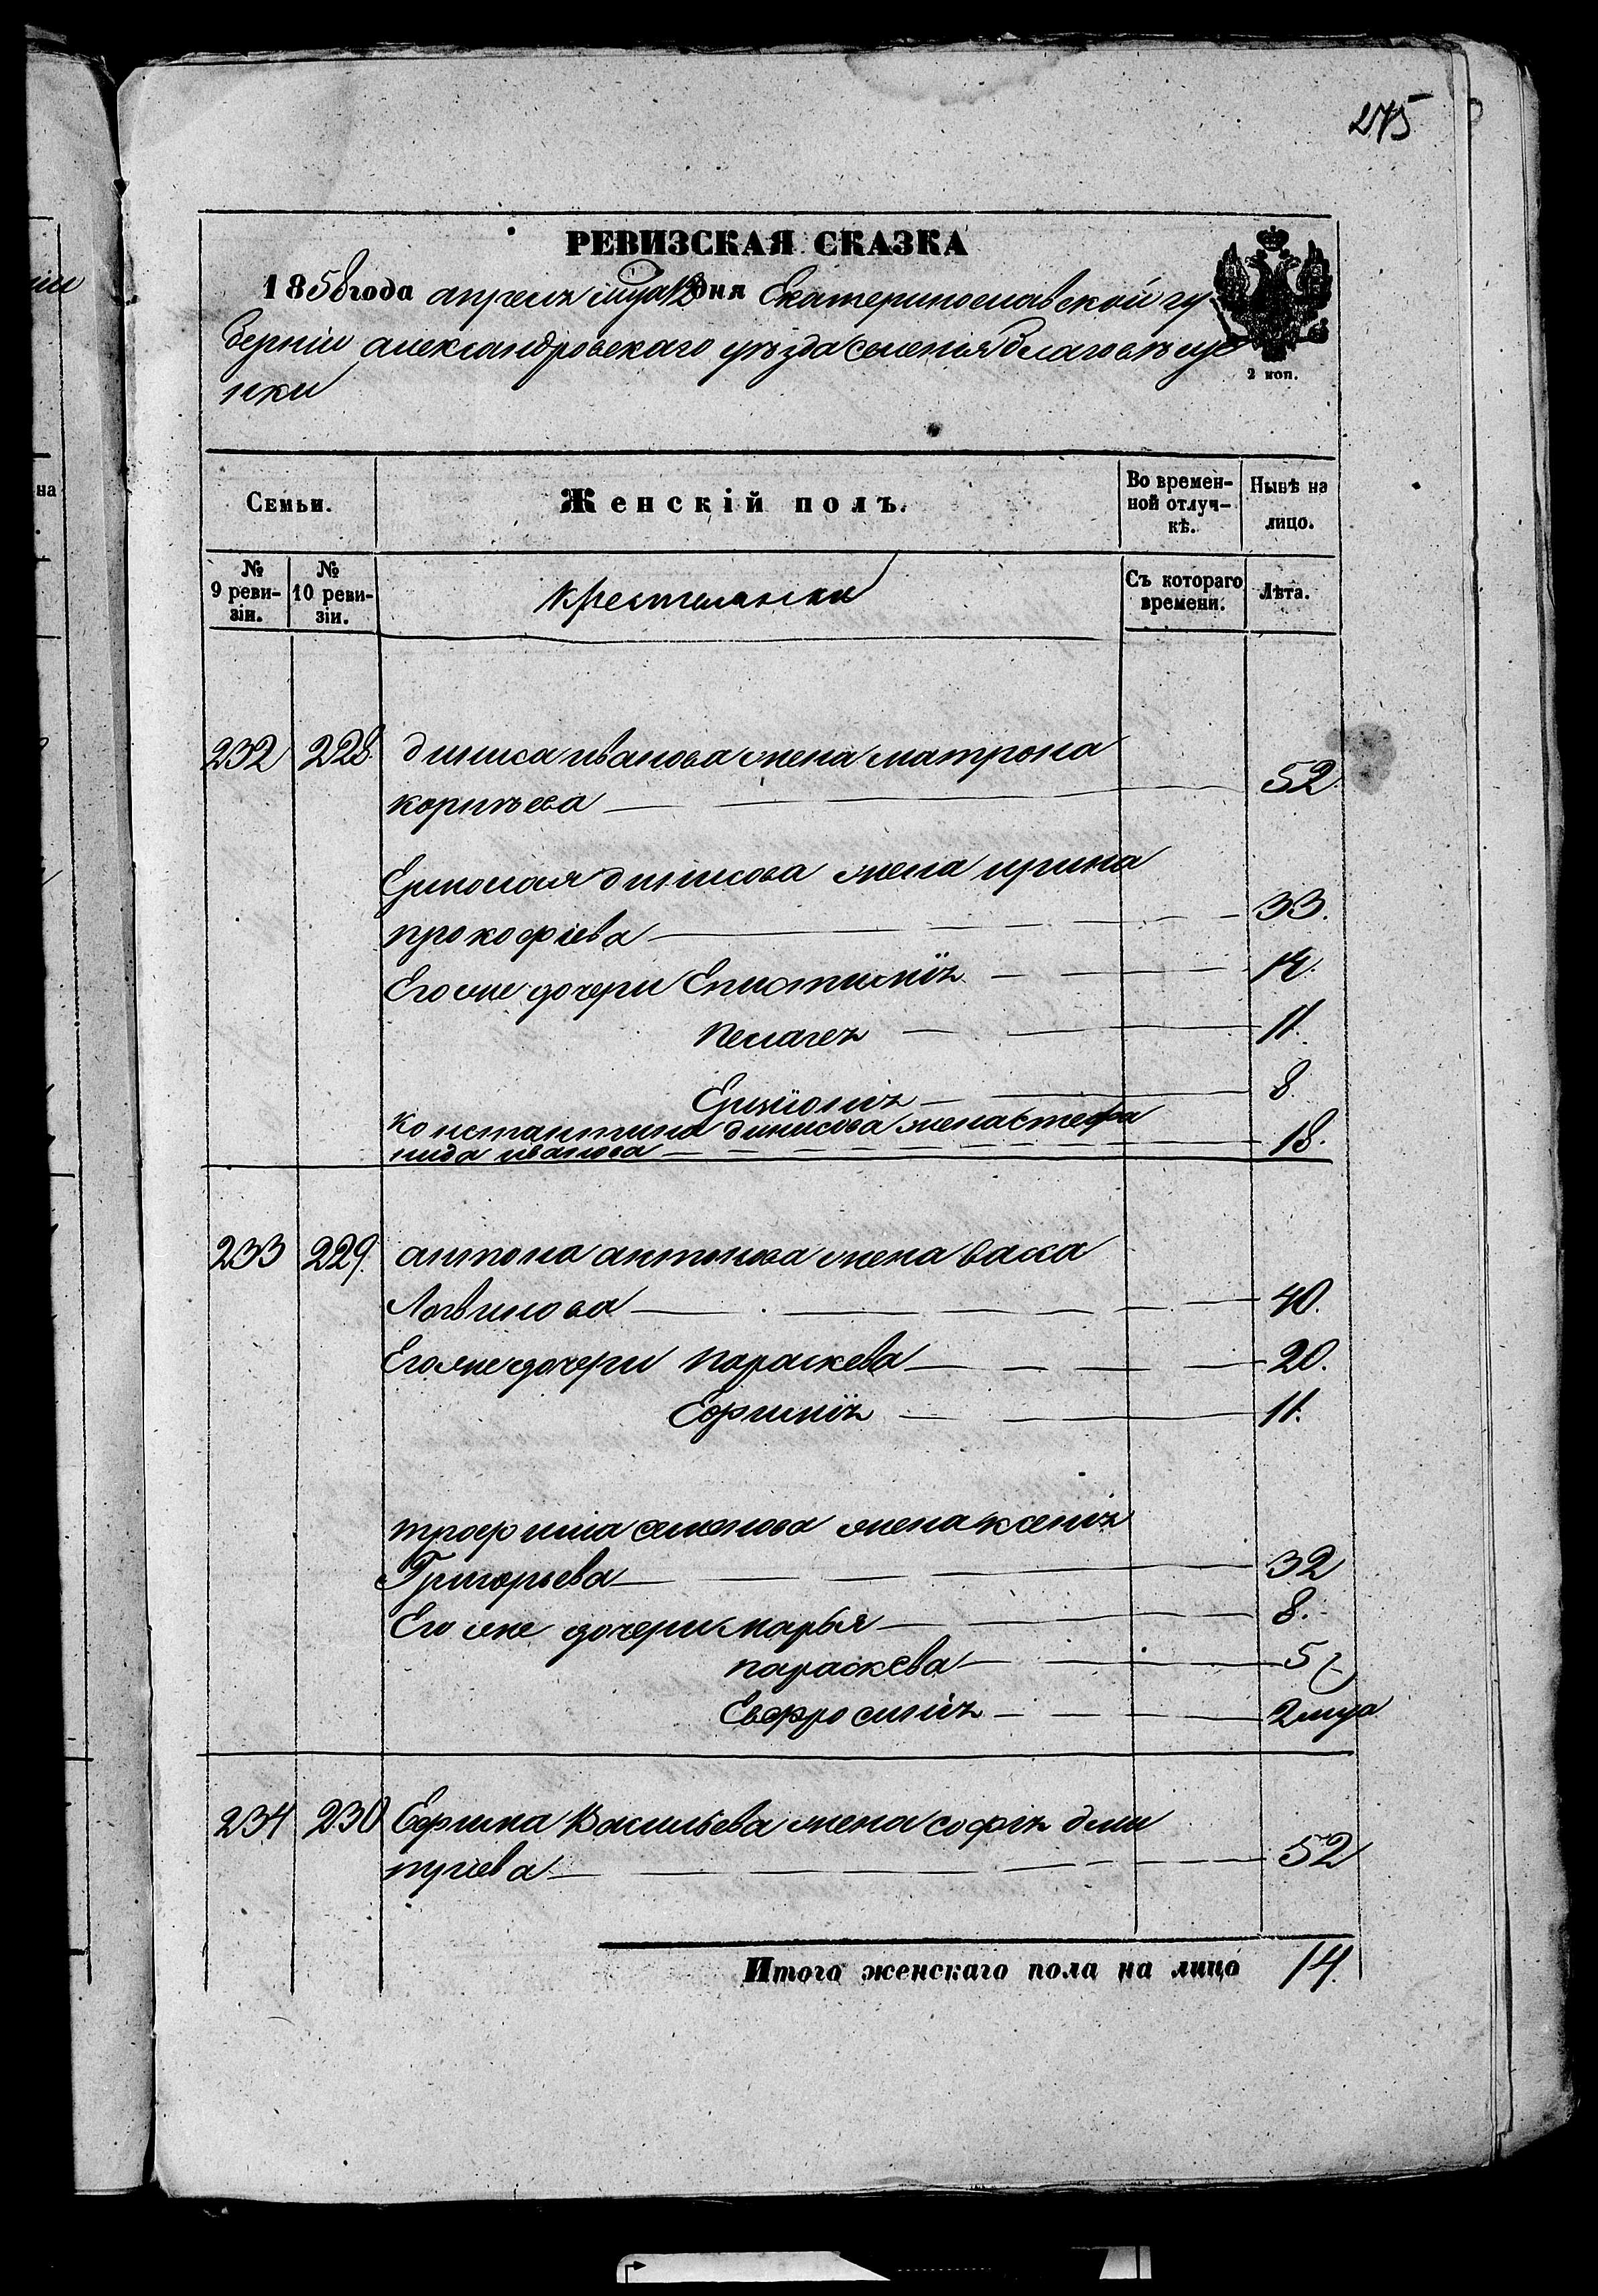 275
РЕВИЗСКАЯ СКАЗКА
1858 года апреля мца 12 дня Екатеринославской гу
берніи александровскаго уѣзда селенія благовѣще
нки
2 коп.
Семьи. Женскій полъ. Во времен-
ной отлуч-
кѣ. Нынѣ на
лицо.
№
9 реви-
зіи. №
10 реви-
зіи. крестьянки Съ котораго
времени. Лѣта.
232 228. диниса иванова жена матрона
корнѣева 52.
динисова жена ирина
прокофіева 33.
Его же дочери Епистимія 14.
пелагея 11.
8.
константина динисова жена стефа
нида иванова 18.
233 229. антона антонова жена васса
Логвинова 40.
Его же дочери параскева 20.
Ефимія 11.
трофима семенова жена ксенія
Григорьева 32
Его же дочери марья 8.
параскева 5
Евфросинія 2 мца
234 230 Ефима Васильева жена софія дми
тріева 52
Итого женскаго пола на лицо 14.
на